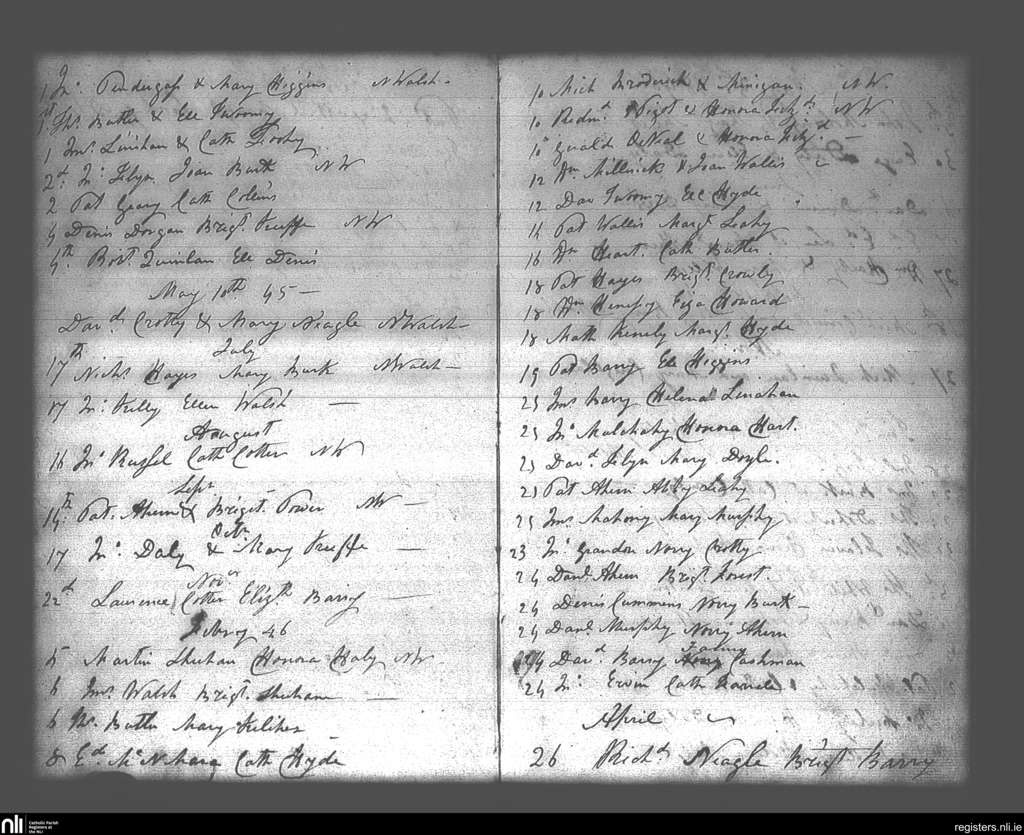 1 Jno. Pendergass & Mary Higgins N Walsh -
Ths. Butler & Ele Twomy
1 Jms. Linihan & Cath
2d. Jno. Joan Burk NW
2 Pat Geary Cath Collins
4 Denis Dorgan Brigt. Keeffe NW
4th. Robt. Quinlan Ele Denis
May 10th 45 -
Davd. Crotty & Mary Neagle N Walsh -
July
17th Nichs. Hayes Mary Burk N Walsh -
17 Jno. Kelly Ellen Walsh -
August
16 Jno. Russel Cath Cotter NW
Sepr
14th Pat. Ahern & Brigit. Power NW -
Octr
17 Jno. Daly & Mary Keeffe -
Novr
22d Laurence Cotter Elizth Barry -
Febry 46
5 Martin Shehan Honora Haly NW
6 Jms. Walsh Brigt. Shehane -
6 Ths. Butler Mary Kelliher -
8 Ed. McNMara Cath Hyde
10 Mich Brodrick & Minigan. NW.
10 Redmd Pigot & Honora Fitzd NW
10 Gerald ONeal & Honora Fitzd -
12 Wm Millerick & Joan Wallis
12 Dav Twomy Ele Hyde
14 Pat Wallis Margt Leahy
16 Wm Heart. Cath Butler.
18 Pat Hayes Brigt. Crowly
18 Wm. Henessy Eliza Howard
18 Math Kenely Margt. Hyde
19 Pat Barry Ele Higgins
23 Jms Barry Helena Linahan
23 Jno. Mulchahy Honora Hart.
23 Davd. Mary Doyle.
23 Pat Ahern Abby Leahy
23 Jms Mahony Mary Murphy
23 Jno. Grandon Norry Crotty -
24 Danl. Ahern Brigt. Forest
24 Denis Cummens Norry Burk -
24 Danl Murphy Norry Ahern
24 Davd. Barry Cashman
24 Jno. Cath
April
26 Richd. Neagle Brigt Barry
nli Catholic Parish Registers at the NLI
registers.nli.ie